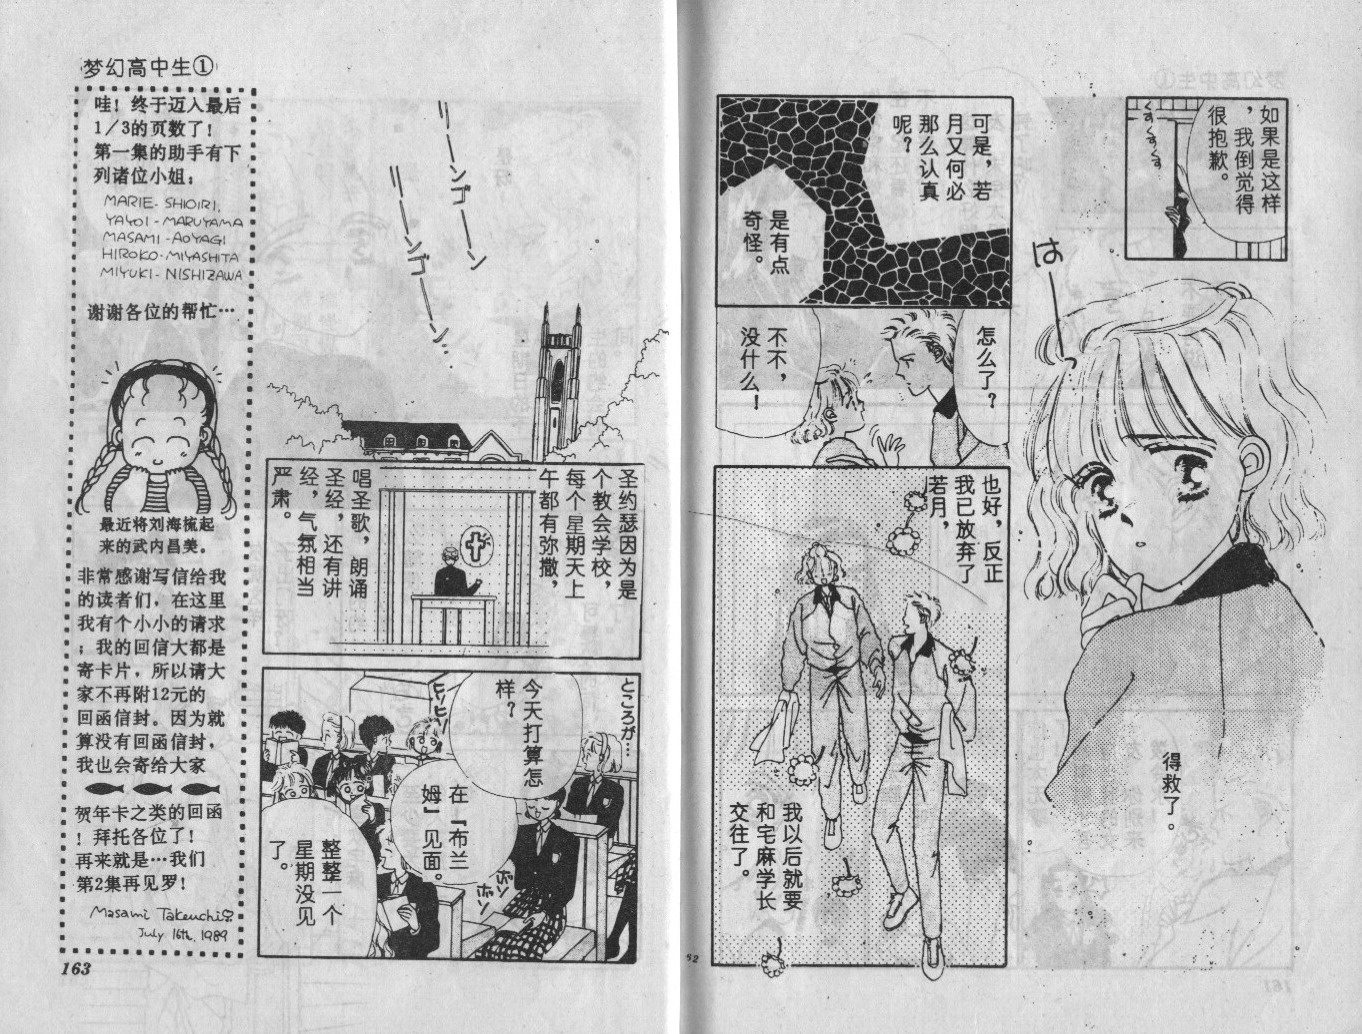 如果是这样
，我倒觉得
很抱歉。
くすくす
は
得救了。
可是，若
月又何必
那么认真
呢？
是有点
奇怪。
怎么了？
不不，
没什么！
也好，反正
我已放弃了
若月，
我以后就要
和宅麻学长
交往了。
リーンゴーン
リーンゴーン…
圣约瑟因为是
个教会学校，
每个星期天上
午都有弥撒，
唱圣歌，朗诵
圣经，还有讲
经，气氛相当
严肃。
ところが…
今天打算怎
样？
ヒソヒソ
在『布兰
姆』见面。
ボソボソ
整整一个
星期没见
了。
梦幻高中生①
哇！终于迈入最后
1／3的页数了！
第一集的助手有下
列诸位小姐；
MARIE - SHIOIRI.
YAYOI - MARUYAMA
MASAMI - AOYAGI
HIROKO - MIYASHITA
MIYUKI - NISHIZAWA
谢谢各位的帮忙…
最近将刘海梳起
来的武内昌美。
非常感谢写信给我
的读者们，在这里
我有个小小的请求
；我的回信大都是
寄卡片，所以请大
家不再附12元的
回函信封。因为就
算没有回函信封，
我也会寄给大家
贺年卡之类的回函
！拜托各位了！
再来就是…我们
第2集再见罗！
Masami Takeuchi
July 16th, 1989
163